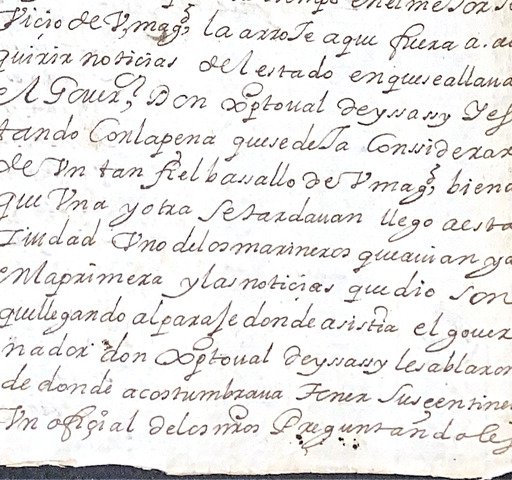 vicio de V mag^d la arroje a que fuera a. ad
quirir noticias del estado en que se allaua
el Gouer^r Don xptoual de yssassy Y es
tando Con la pena que se dexa Considerar
de Vn tan fiel bassallo de V mag^d, biend
que Vna y otra se tardauan llego a esta
Ciudad Vno de los marineros que auian ya
en la primera y las noticias que dio son
que llegando al paraje donde asistia el gouer
nador don xptoual de yssassy les ablaron
de donde acostumbraua tener sus centine
Vn ofiçial de los nros Preguntandoles